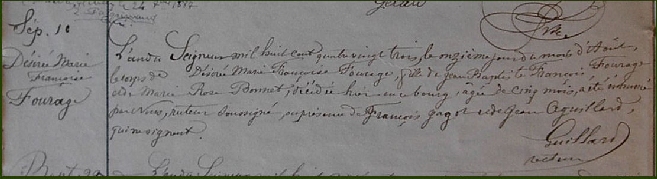 Gérard
Sép. 10
Désirée Marie
Françoise
Fourage
L'an du Seigneur mil huit cent quatre vingt trois, le onzième jour du mois d'Août,
le corps de Désirée Marie Françoise Fourage, fille de Jean Baptiste François, Fourage
et de Marie Rose Bonnet, décédée hier en ce bourg, agée de cinq mois, a été inhumé
par Nous, recteur soussigné, en présence de François gagot et de Jean Couillard,
qui ne signent.
Guillard
recteur
L'an du Seigneur mil huit cent